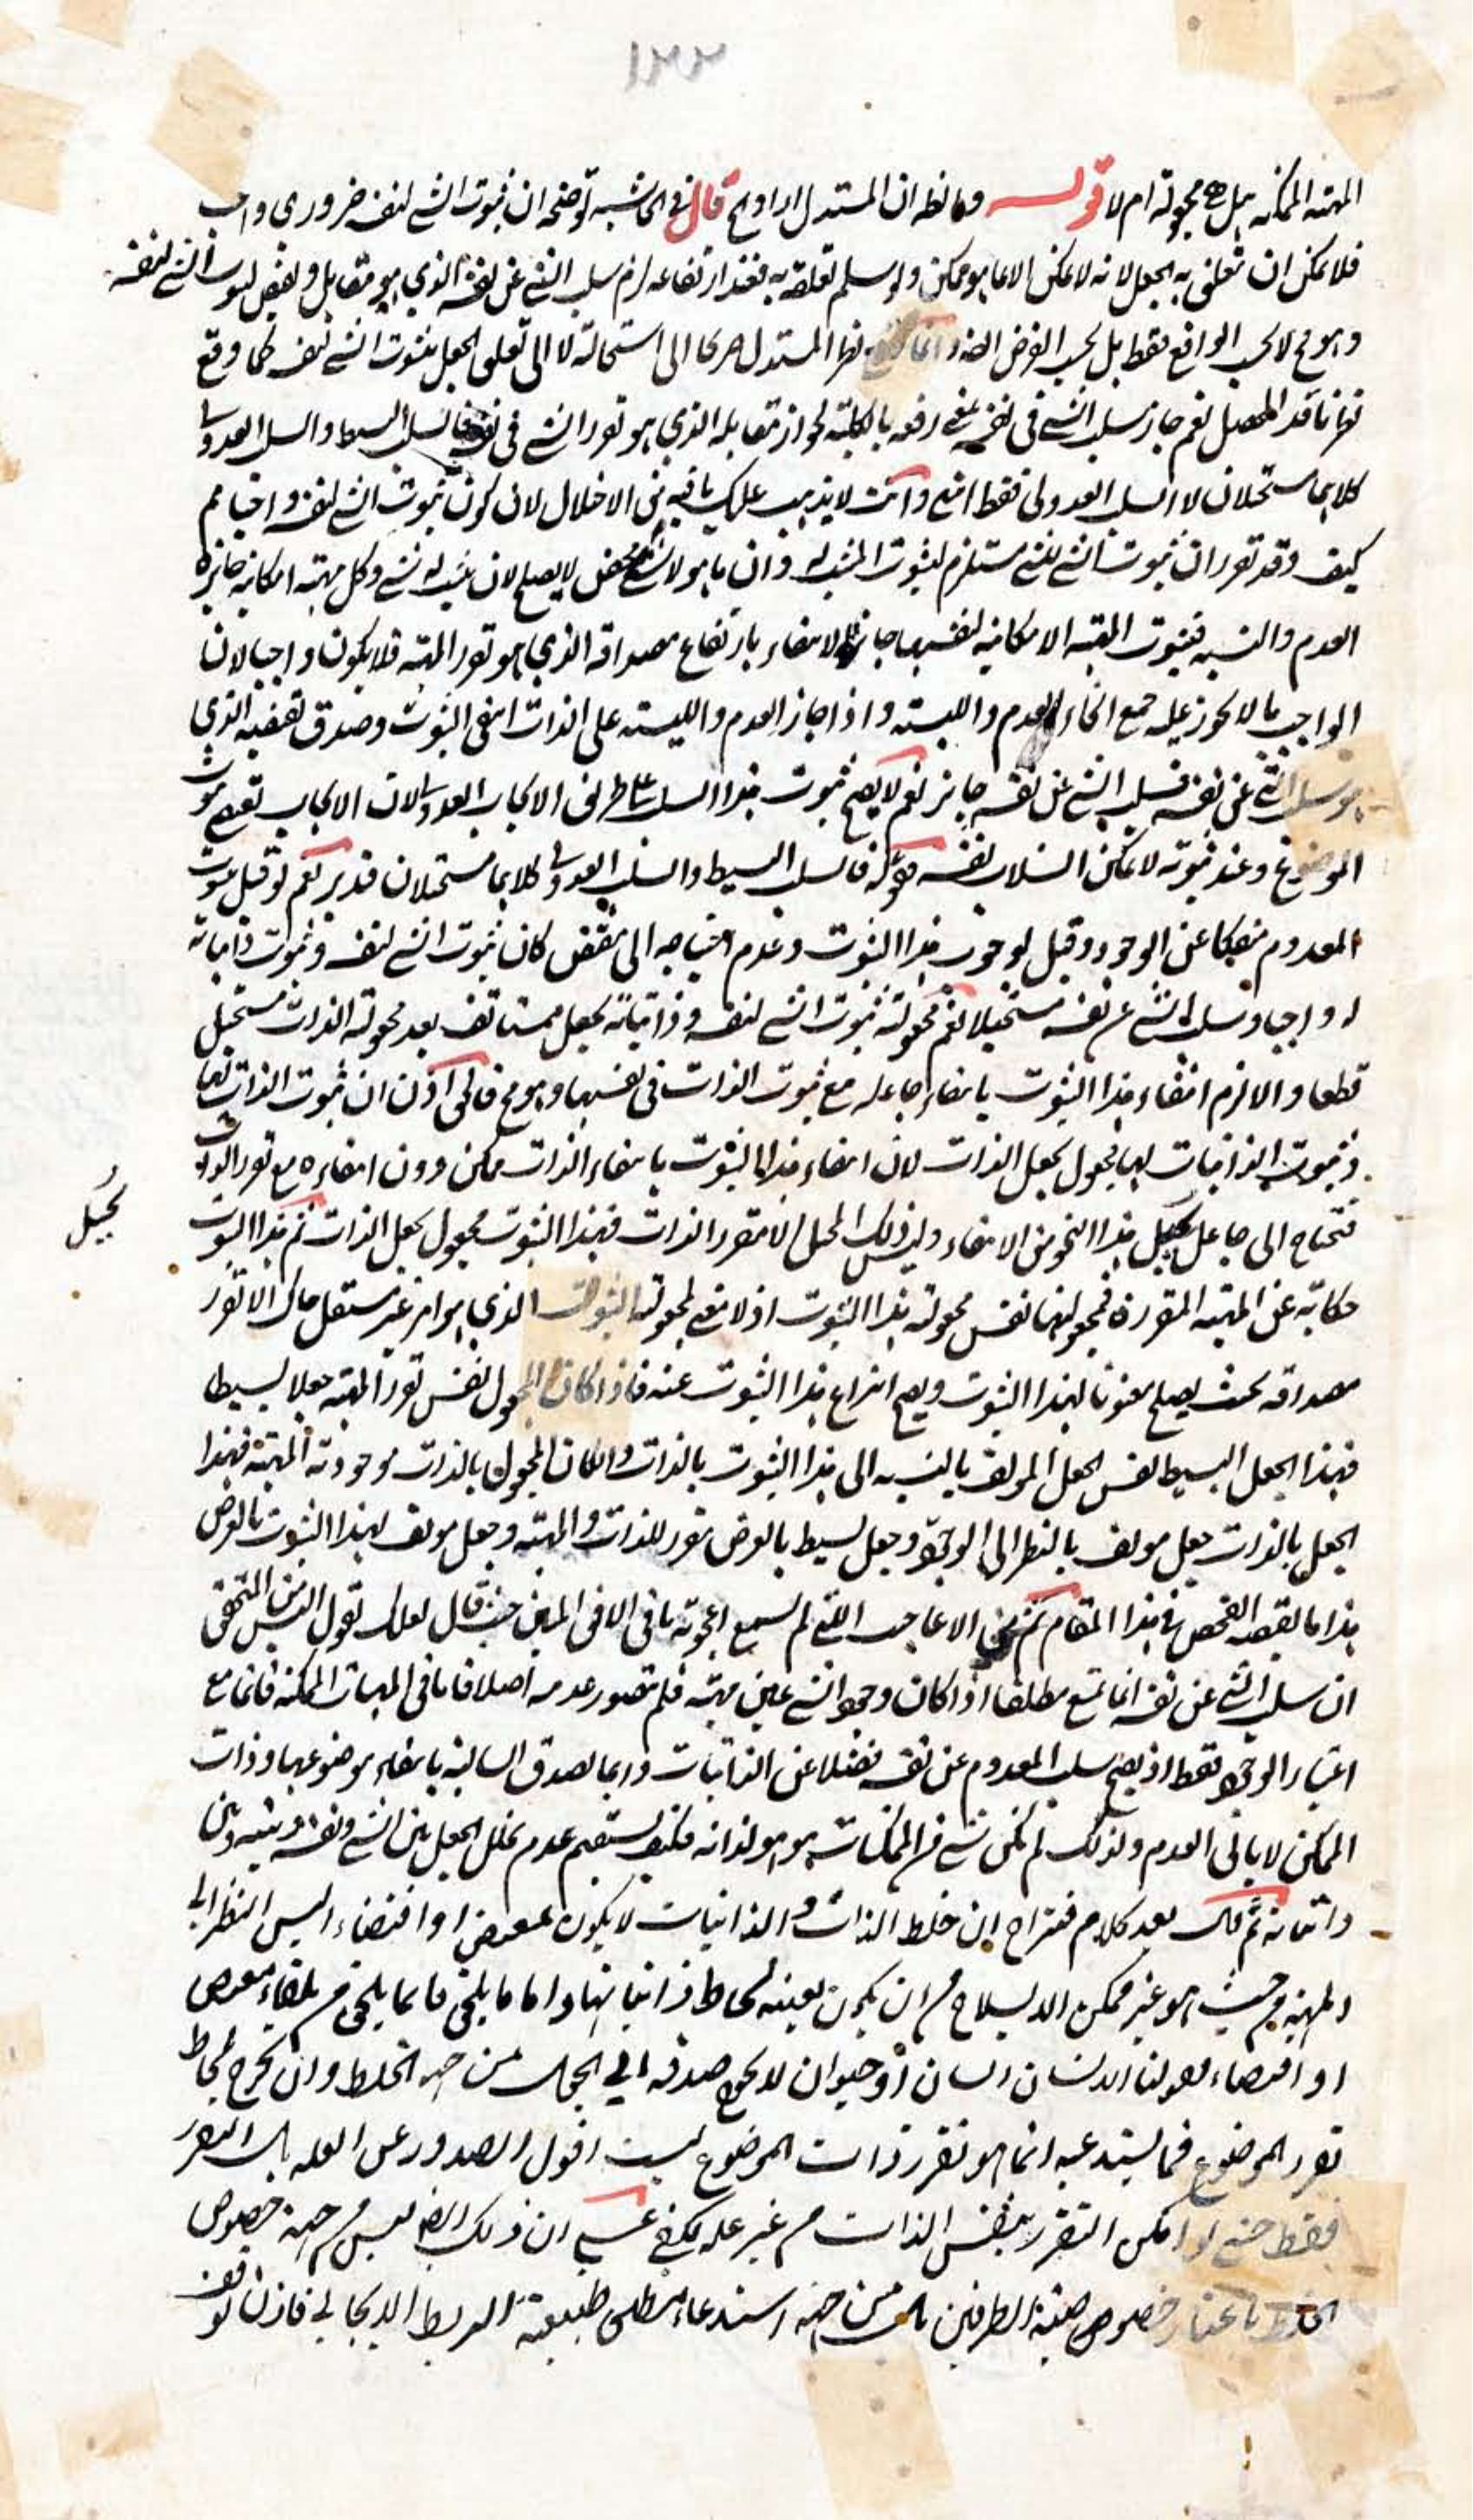 ١٢٢
المهية الممكنة هل هي مجعولة ام لا قوله وما نظر ان المستدل اراد الخ قال في الحاشية توضيحه ان ثبوت الشئ لنفسه ضروري واجب
فلا يمكن ان يتعلق به الجعل لانه لا يمكن الا بما هو ممكن ولو سلم تعلقه به فعند ارتفاعه لزم سلب الشئ عن نفسه الذي هو مقابل ونقيض لثبوت الشئ لنفسه
وهو مح لا بحسب الواقع فقط بل بحسب الفرض ايضا وانما نظر المستدل هو كما الى استحالة لا الى تعلق الجعل بثبوت الشئ لنفسه كما وقع
نعم جاز سلب الشئ في نفسه بمعنى رفعه بالكلية لجواز مقابله الذي هو تقرر الشئ في نفسه فالسلب البسيط والسلب العدولي
كلاهما مستحيلان لا السلب العدولي فقط انتهى وانت لا يذهب عليك ما فيه من الاخلال لان كون ثبوت الشئ لنفسه واجبا مم
كيف وقد تقرر ان ثبوت الشئ للشئ مستلزم لثبوت المثبت له وان ما هو لا شئ محض لا يصلح لان يثبت له شئ وكل مهية امكانية جائزة
العدم والليسية فثبوت المهية الامكانية لنفسها جائز الانتفاء بارتفاع مصداقه الذي هو تقرر المهية فلا يكون واجبا لان
الواجب ما لا يجوز عليه جميع انحاء العدم والليسية واذا جاز العدم والليسية على الذات انتفى الثبوت وصدق نقيضه الذي
هو سلب الشئ عن نفسه فسلب الشئ عن نفسه جائز نعم لا يصح ثبوت هذا السلب على طريق الايجاب العدولي لان الايجاب يقتضي ثبوت
الموضوع وعند ثبوته لا يمكن انسلاب نفسه قوله فالسلب البسيط والسلب العدولي كلاهما مستحيلان فتدبر نعم لو قيل بثبوت
المعدوم منفكا عن الوجود وقيل لوجوب هذا الثبوت وعدم احتياجه الى مقتض كان ثبوت الشئ لنفسه وثبوت ذاتياته
له واجبا وسلب الشئ عن نفسه مستحيلا نعم مجعولية ثبوت الشئ لنفسه وذاتياته بجعل مستانف بعد مجعولية الذات مستحيل
قطعا والا لزم انتفاء هذا الثبوت بانتفاء جاعله مع ثبوت الذات في نفسها وهو مح فالحق اذن ان ثبوت الذات لها
وثبوت الذاتيات لها مجعول بجعل الذات لان انتفاء هذا الثبوت بانتفاء الذات ممكن دون انتفائه مع تقرر الذات
فتحتاج الى جاعل يحيل هذا النحو من الانتفاء وليس ذلك المحيل الا مقرر الذات فهذا الثبوت مجعول بجعل الذات ثم هذا الثبوت
حكاية عن المهية المتقررة فمجعوليتها نفس مجعولية هذا الثبوت اذ لا معنى لمجعولية الثبوت الذي هو امر غير مستقل هناك الا تقرر
مصداقه بحيث يصلح معنونا لهذا الثبوت ويصح انتزاع هذا الثبوت عنه فاذا كان المجعول نفس تقرر المهية جعلا بسيطا
فهذا الجعل البسيط نفس الجعل المولف بالنسبة الى هذا الثبوت بالذات وان كان المجعول بالذات موجودية المهية فهذا
الجعل بالذات جعل مولف بالنظر الى الوجود وجعل بسيط بالعرض بتقرر للذات والمهية وجعل مولف لهذا الثبوت بالعرض
هذا ما يقتضيه الفحص في هذا المقام ثم من الاعاجيب التي لم يسمع اعجوبة ما في الافق المبين حيث قال لعلك تقول اليس من المتحقق
ان سلب الشئ عن نفسه انما يمتنع مطلقا اذا كان وجود الشئ عين مهيته فلم يتصور عدمه اصلا فاما في المهيات الممكنة فانما مع
اعتبار الوجود فقط اذ يصح سلب المعدوم عن نفسه فضلا عن الذاتيات وربما تصدق السالبة بانتفاء موضوعها وذات
الممكن لا يابى العدم ولذلك لم يكن شئ من الممكنات هو هو لذاته فكيف يستقيم عدم تخلل الجعل بين الشئ ونفسه وبينه وبين
ذاتياته ثم قال بعد كلام فتزاح ان خلط الذات والذاتيات لا يكون لمعوض او اقتضاء اليس النظر الى
المهية من حيث هو غير ممكن الانسلاخ من ان يكون بعينه لحاظ ذاتياتها واما ما يلحق فانما يلحق من تلقاء مقتض
او اقتضاء فقولنا الانسان انسان او حيوان لا يحوج صدقه الى الجعل من جهة الخلط وان يحوج لحاظ
تقرر الموضوع فما يستدعيه انما هو تقرر ذات الموضوع لست اقول الصدور عن العلة بل التقرر
فقط حتى لو امكن التقرر بنفس الذات من غير علة يكفي على ان ذلك ايضا ليس من جهة خصوص
الخلط باعتبار خصوص حيثية الطرفين بل من جهة استدعاء مطلق طبيعة الربط الايجابي فاذن توقف
يُحيل